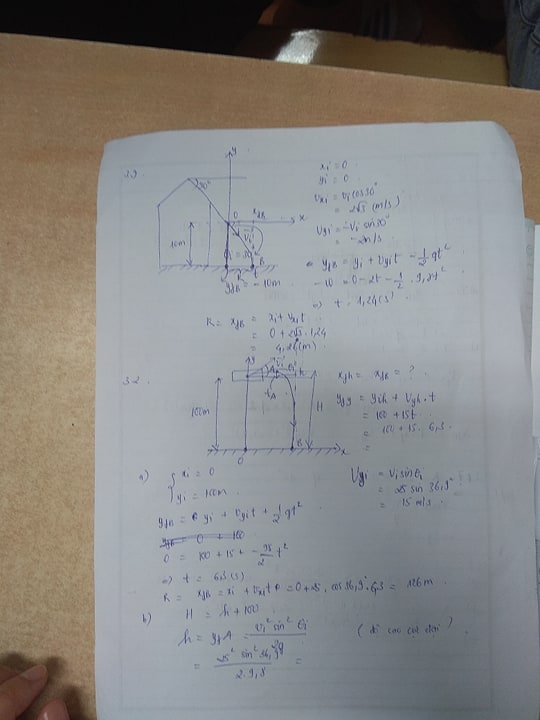 3.9
y
30°
O
x_fB
x
v_i
10m
R
B
y_fB = -10m
x_i = 0
y_i = 0
v_xi = v_i cos 30°
= 2√3 (m/s)
v_yi = -v_i sin 30°
= -2m/s
y_fB = y_i + v_yi t - 1/2 gt²
-10 = 0 - 2t - 1/2 . 9,8t²
=> t = 1,24(s)
R = x_fB = x_i + v_xi t
= 0 + 2√3 . 1,24
= 4,2 (m)
3.2
y
A
100m
H
B
O
x
x_fB = ?
= 100 + 15t
= 100 + 15 . 6,3
=
a) { x_i = 0
y_i = 100m
V_yi = v_i sin θ_i
= 25 sin 36,9°
= 15 m/s
y_fB = y_i + v_yi t + 1/2 gt²
y_fB = 0 + 100
0 = 100 + 15t - 9,8/2 t²
=> t = 6,3 (s)
R = x_fB = x_i + v_xi t = 0 + 25 . cos 36,9 . 6,3 = 126m
b) H = h + 100
h = y_fA = v_i² sin² θ_i / 2g
(độ cao cực đại)
= 25² sin² 36,9° / 2 . 9,8 =